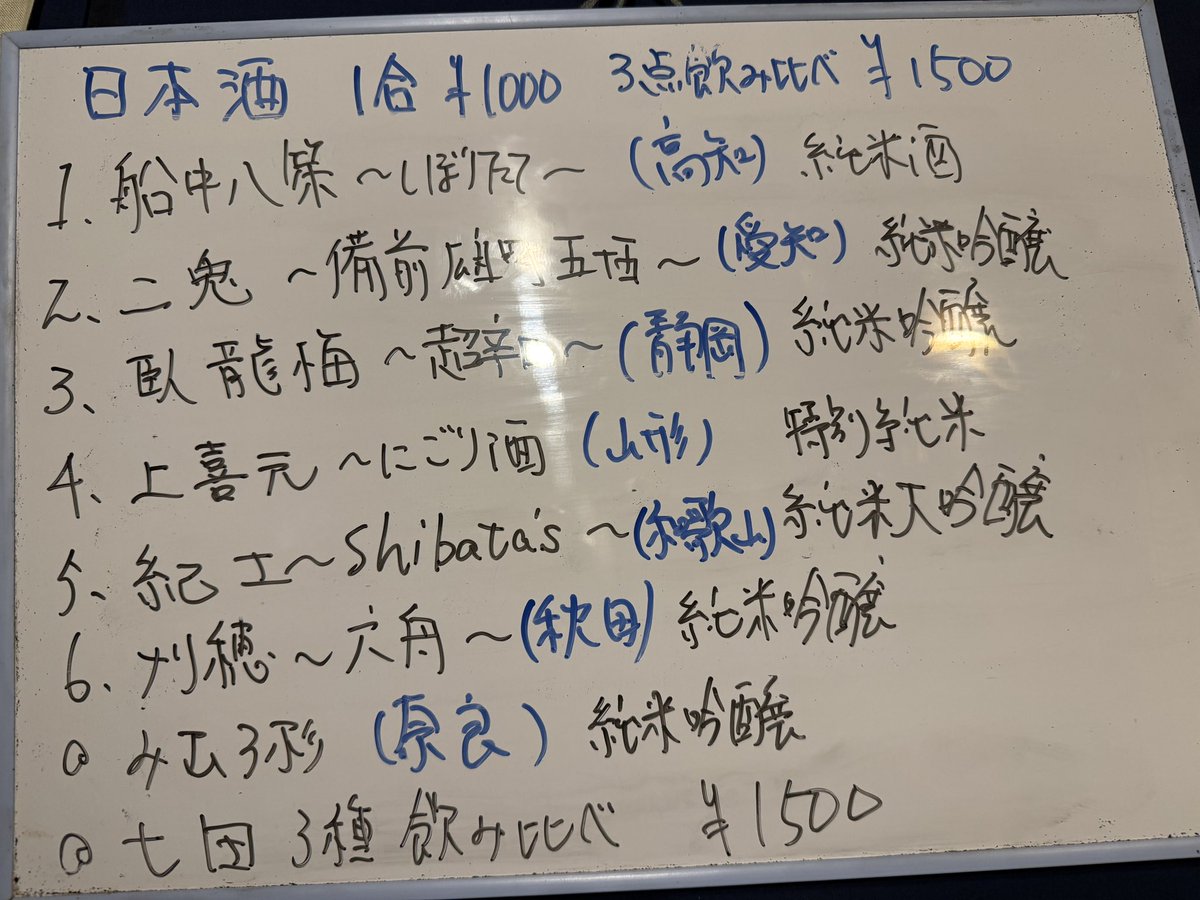 日本酒 1合 ¥1000 3点飲み比べ ¥1500
1、船中八策 〜しぼりたて〜 (高知) 純米酒
2、二兎 〜備前雄町五十五〜 (愛知) 純米吟醸
3、臥龍梅 〜超辛口〜 (静岡) 純米吟醸
4、上喜元 〜にごり酒 (山形) 特別純米
5、紀土〜Shibata's〜 (和歌山) 純米大吟醸
6、刈穂〜六舟〜 (秋田) 純米吟醸
@ み 3彩 (良) 純米吟醸
@ 七田 3種飲み比べ ¥1500